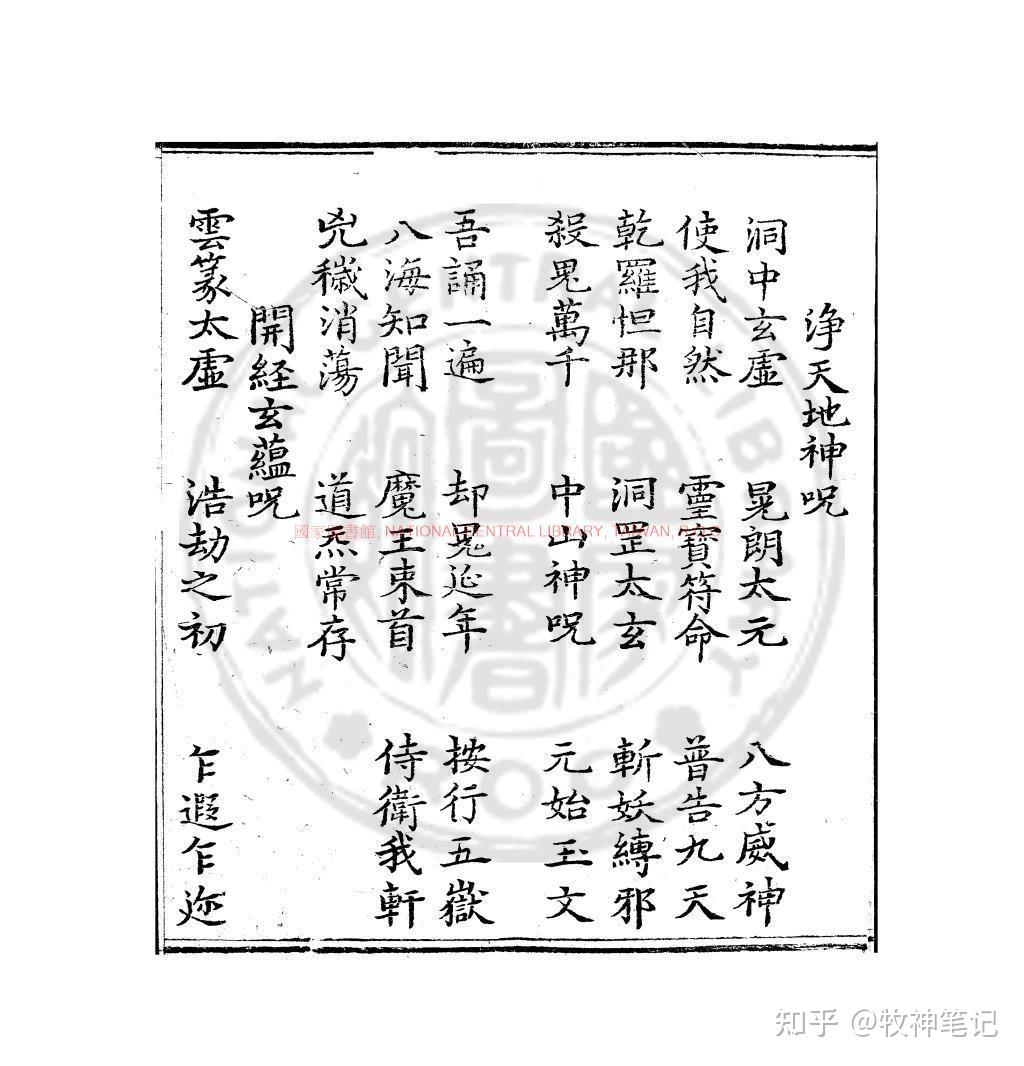 浄天地神呪
洞中玄虚 晃朗太元 八方威神
使我自然 靈寶符命 普告九天
乾羅怛那 洞罡太玄 斬妖縛邪
殺鬼萬千 中山神呪 元始玉文
吾誦一遍 却鬼延年 按行五嶽
八海知聞 魔王束首 侍衛我軒
兇穢消蕩 道炁常存
開経玄蘊呪
雲篆太虚 浩劫之初 乍遐乍迩
國家圖書館, NATIONAL CENTRAL LIBRARY, TAIWAN, R.O.C
知乎 @牧神笔记